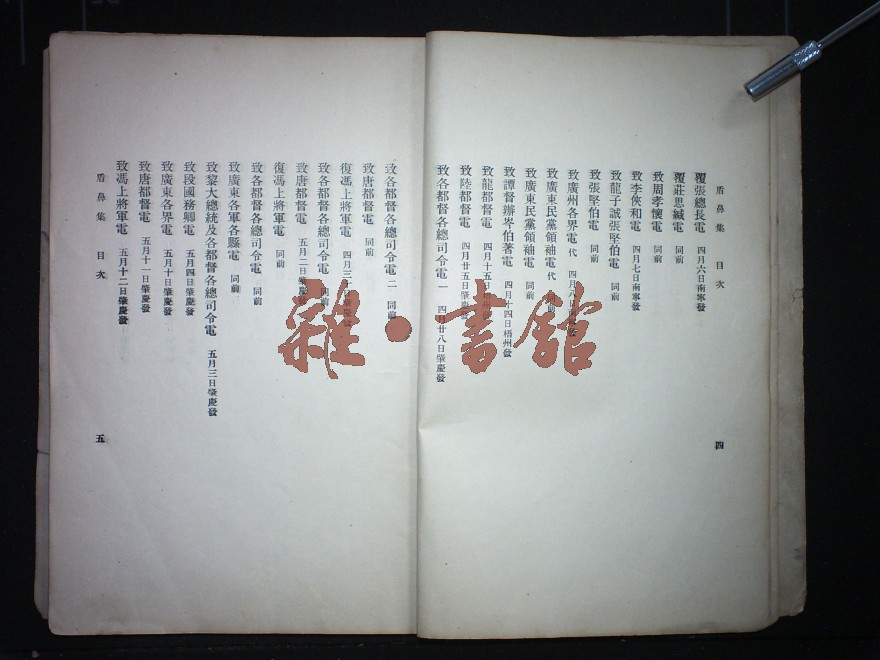 盾鼻集　目次
覆張總長電　四月六日南寧發
覆莊思緘電　同前
致周孝懷電　同前
致李俠和電　四月七日南寧發
致龍子誠張堅伯電　同前
致張堅伯電　同前
致廣州各界電　代　四月八日
致廣東民黨領袖電　代　同前
致廣東民黨領袖電　同前
致譚督辦岑伯著電　四月十四日梧州發
致龍都督電　四月十五日
致陸都督電　四月廿五日肇慶發
致各都督各總司令電　一　四月廿八日肇慶發
四
致各都督各總司令電　二　同前
致唐都督電　同前
復馮上將軍電　四月三十日肇慶發
致各都督各總司令電　同前
致唐都督電　五月二日肇慶發
復馮上將軍電　同前
致各都督各總司令電　同前
致廣東各軍各縣電　同前
致黎大總統及各都督各總司令電　五月三日肇慶發
致段國務卿電　五月四日肇慶發
致廣東各界電　五月十日肇慶發
致唐都督電　五月十一日肇慶發
致馮上將軍電　五月十二日肇慶發
盾鼻集　目次
五
雜·書館